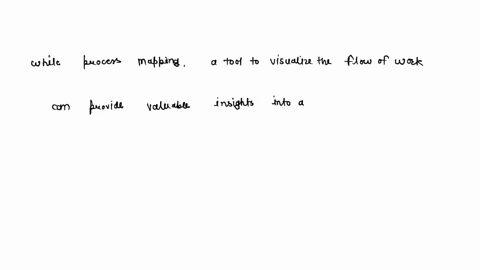 while process mapping, a tool to visualize the flow of work
can provide valuable insights into a